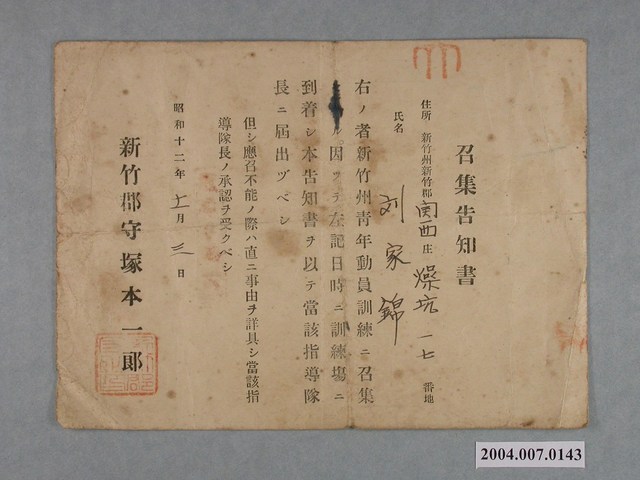 召集告知書
住所 新竹州新竹郡関西庄燥坑一七番地
氏名 刘家錦
右ノ者新竹州青年動員訓練ニ召集
ル因テ左記日時ニ訓練場ニ
到着シ本告知書ヲ以テ當該指導隊
長ニ届出ヅベシ
但シ應召不能ノ際ハ直ニ事由ヲ詳具シ當該指
導隊長ノ承認ヲ受クベシ
昭和十二年十一月三日
新竹郡守塚本一郎
2004.007.0143